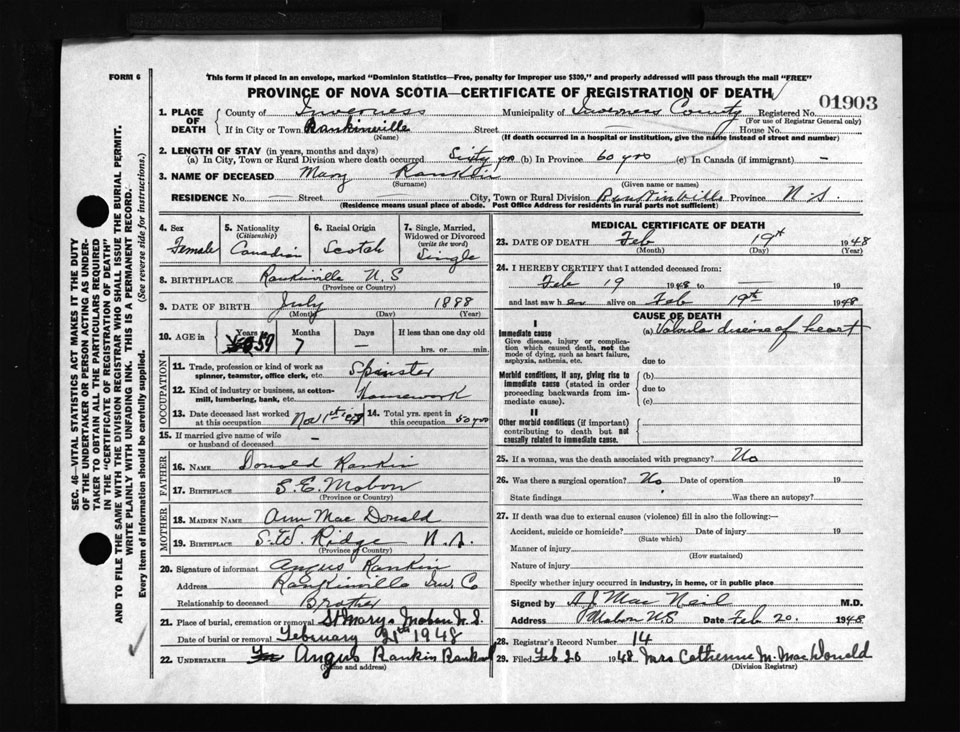 FORM 6
This form if placed in an envelope, marked "Dominion Statistics—Free, penalty for improper use $300," and properly addressed will pass through the mail "FREE"
PROVINCE OF NOVA SCOTIA—CERTIFICATE OF REGISTRATION OF DEATH
01903
1. PLACE OF DEATH County of Inverness Municipality of Inverness County Registered No.
(For use of Registrar General only)
If in City or Town Rankinville Street House No.
(Name) (If death occurred in a hospital or institution, give the name instead of street and number)
2. LENGTH OF STAY (in years, months and days)
(a) In City, Town or Rural Division where death occurred Sixty yrs (b) In Province 60 yrs (c) In Canada (if immigrant) —
3. NAME OF DECEASED Mary Rankin
(Surname) (Given name or names)
RESIDENCE No. — Street City, Town or Rural Division Rankinville Province N.S.
(Residence means usual place of abode. Post Office Address for residents in rural parts not sufficient)
4. Sex Female
5. Nationality (Citizenship) Canadian
6. Racial Origin Scotch
7. Single, Married, Widowed or Divorced (write the word) Single
8. BIRTHPLACE Rankinville N.S
(Province or Country)
9. DATE OF BIRTH July 1888
(Month) (Day) (Year)
10. AGE in Years 59 Months 7 Days — If less than one day old
hrs. or min.
OCCUPATION
11. Trade, profession or kind of work as spinner, teamster, office clerk, etc. Spinster
12. Kind of industry or business, as cotton-mill, lumbering, bank, etc. Housework
13. Date deceased last worked at this occupation Nov 1st 14. Total yrs. spent in this occupation 50 yrs
15. If married give name of wife or husband of deceased —
FATHER
16. NAME Donald Rankin
17. BIRTHPLACE S.E. Mabou
(Province or Country)
MOTHER
18. MAIDEN NAME Ann Mac Donald
19. BIRTHPLACE S.W. Ridge N.S.
(Province or Country)
20. Signature of informant Angus Rankin
Address Rankinville Inv. Co
Relationship to deceased Brother
21. Place of burial, cremation or removal St Marys Mabou N.S.
Date of burial or removal February 21st 1948
22. UNDERTAKER Angus Rankin
(Name and address)
MEDICAL CERTIFICATE OF DEATH
23. DATE OF DEATH Feb 19th 1948
(Month) (Day) (Year)
24. I HEREBY CERTIFY that I attended deceased from:
Feb 19 1948 to — 19
and last saw her alive on Feb 19th 1948
CAUSE OF DEATH
I
Immediate cause
Give disease, injury or complication which caused death, not the mode of dying, such as heart failure, asphyxia, asthenia, etc.
(a) Valvular disease of heart
due to
Morbid conditions, if any, giving rise to immediate cause (stated in order proceeding backwards from immediate cause).
(b)
due to
(c)
II
Other morbid conditions (if important) contributing to death but not causally related to immediate cause.
25. If a woman, was the death associated with pregnancy? No
26. Was there a surgical operation? No. Date of operation 19
State findings Was there an autopsy?
27. If death was due to external causes (violence) fill in also the following:—
Accident, suicide or homicide? Date of injury 19
(State which)
Manner of injury
(How sustained)
Nature of injury
Specify whether injury occurred in industry, in home, or in public place
Signed by A J Mac Neil M.D.
Address Mabou N.S Date Feb 20. 1948
28. Registrar's Record Number 14
29. Filed Feb 20 1948 Mrs Catherine M. MacDonald
(Division Registrar)
SEC. 46—VITAL STATISTICS ACT MAKES IT THE DUTY
OF THE UNDERTAKER OR PERSON ACTING AS UNDER-
TAKER TO OBTAIN ALL THE PARTICULARS REQUIRED
IN THE "CERTIFICATE OF REGISTRATION OF DEATH"
AND TO FILE THE SAME WITH THE DIVISION REGISTRAR WHO SHALL ISSUE THE BURIAL PERMIT.
WRITE PLAINLY WITH UNFADING INK. THIS IS A PERMANENT RECORD.
Every item of information should be carefully supplied. (See reverse side for instructions.)